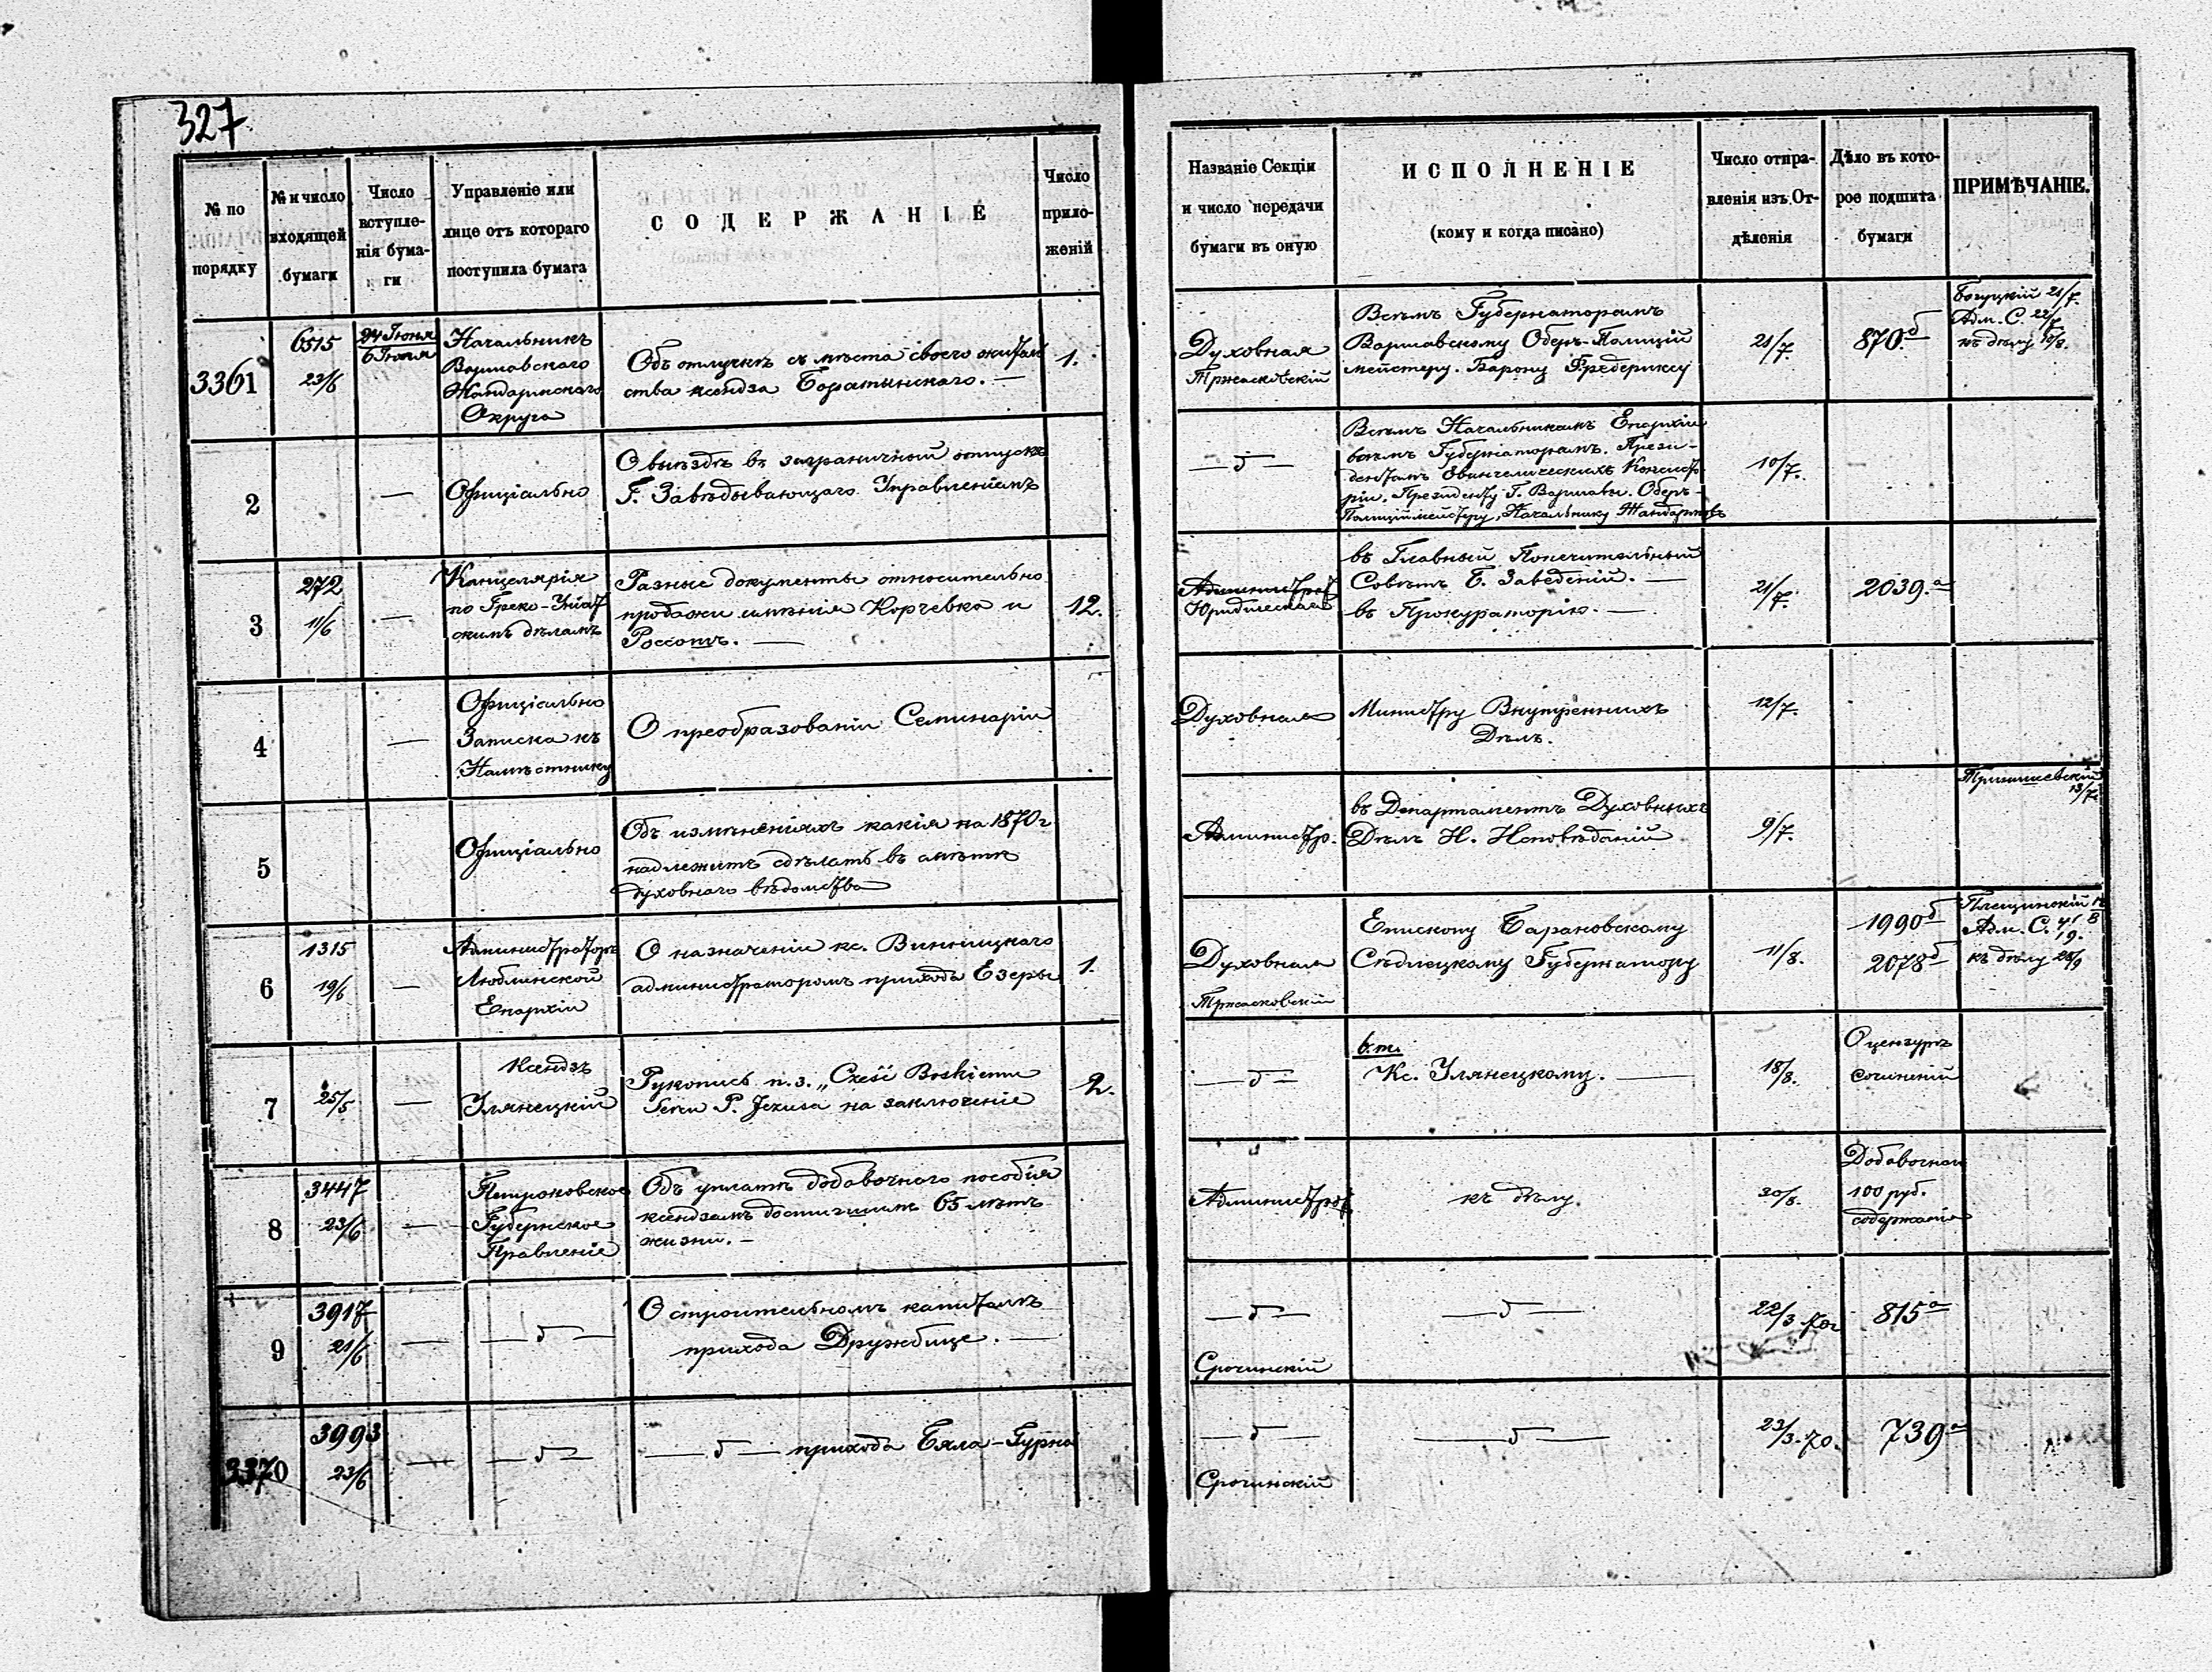 327
№ по порядку
№ и число входящей бумаги
Число вступле-нія бума-ги
Управленіе или лице отъ котораго поступила бумага
СОДЕРЖАНІЕ
Число прило-женій
Названіе Секціи и число передачи бумаги въ оную
ИСПОЛНЕНІЕ
(кому и когда писано)
Число отпра-вленія изъ От-дѣленія
Дѣло въ кото-рое подшита бумаги
ПРИМѢЧАНІЕ.
3361
6515
23/6
24 Іюня
6 Іюля
Начальникъ
Варшавскаго
Жандармскаго
Округа
Объ отлучкѣ съ мѣста своего житель
ства ксендза Боратынскаго. —
1.
Духовная
Тржасковскій
Всѣмъ Губернаторамъ
Варшавскому Оберъ-Полиций
мейстеру. Барону Фредериксу
21/7.
870.б
Богуцкій 21/7.
Адм. С. 22/7
къ дѣлу 10/8.
2
—
Офиціально
О выѣздѣ въ заграничный отпускъ
Г. Завѣдывающаго Управленіемъ
— б —
Всѣмъ Начальникамъ Епархіи
всѣмъ Губернаторамъ. Прези-
дентамъ Евангелическихъ Консисто-
ріи. Президенту Г. Варшавы. Оберъ-
Полиціймейстеру, Начальнику Жандармовъ
10/7.
3
272
11/6
—
Канцелярія
по Греко-Уніат
скимъ дѣламъ
Разные документы относительно
продажи имѣнія Корчевка и
Россошъ. —
12.
Администрат
Юридическая
въ Главный Попечительный
Совѣтъ Б. Заведеній. —
въ Прокураторію. —
21/7.
2039.а
4
—
Офиціально
Записка къ
Намѣстнику
О преобразованіи Семинаріи
Духовная
Министру Внутреннихъ
Дѣлъ.
12/7.
5
Офиціально
Объ измѣненіяхъ какія на 1870 г
надлежитъ сдѣлать въ смѣтѣ
духовнаго вѣдомства
Администр.
въ Департаментъ Духовныхъ
Дѣлъ И. Исповѣданій
9/7.
13/7.
6
1315
19/6
—
Администраторъ
Люблинской
Епархіи
О назначеніи кс. Винницкаго
администраторомъ прихода Езеры
1.
Духовная
Тржасковскій
Епископу Барановскому
Сѣдлецкому Губернатору
11/8.
1990 б
2078 б
Адм. С.
къ дѣлу 28/9
7
25/5
—
Ксендзъ
Улянецкій
Рукопись п. з. „Cześć Boskiemu
Sercu P. Jezusa на заключеніе
2.
— б —
в.т.
Кс. Улянецкому. —
18/8.
О цензурѣ
сочиненій
8
3447
23/6
—
Петроковское
Губернское
Правленіе
Объ уплатѣ добавочнаго пособія
ксендзамъ достигшимъ 65 лѣтъ
жизни. —
Администрат
къ дѣлу.
30/8.
Добавочное
100 руб.
содержаніе
9
3917
21/6
—
— б —
О строительномъ капиталѣ
прихода Дружбице. —
— б —
Срочинскій
— б —
22/3 70г
815 а
3370
3993
23/6
—
— б —
— б — прихода Бяла-Гурна
— б —
Срочинскій
— б —
23/3.70.
739 а